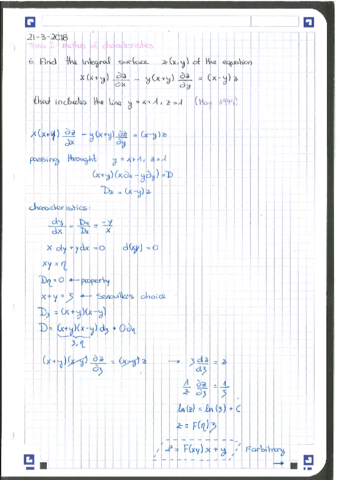 21-3-2018
Tema 2 - Method of characteristics
6. Find the integral surface z(x,y) of the equation
x(x+y) ∂z/∂x - y(x+y) ∂z/∂y = (x-y)z
that includes the line y = x+1, z=1
x(x+y) ∂z/∂x - y(x+y) ∂z/∂y = (x-y)z
passing throught y = x+1, z=1
(x+y)(x∂x - y∂y) = D
Dz = (x-y)z
characteristics:
dy/dx = Dy/Dx = -y/x
x dy + y dx = 0 d(xy) = 0
xy = η
Dη = 0 ← property
x+y = ξ ← choice
Dξ = (x+y)(x-y)
D = (x+y)(x-y) dξ + 0dη
ξ, η
(x+y)(x-y) ∂z/∂ξ = (x-y)z → ξ dz/dξ = z
1/z ∂z/∂ξ = 1/ξ
ln(z) = ln(ξ) + C
z = F(η)ξ
z = F(xy) x+y F arbitrary